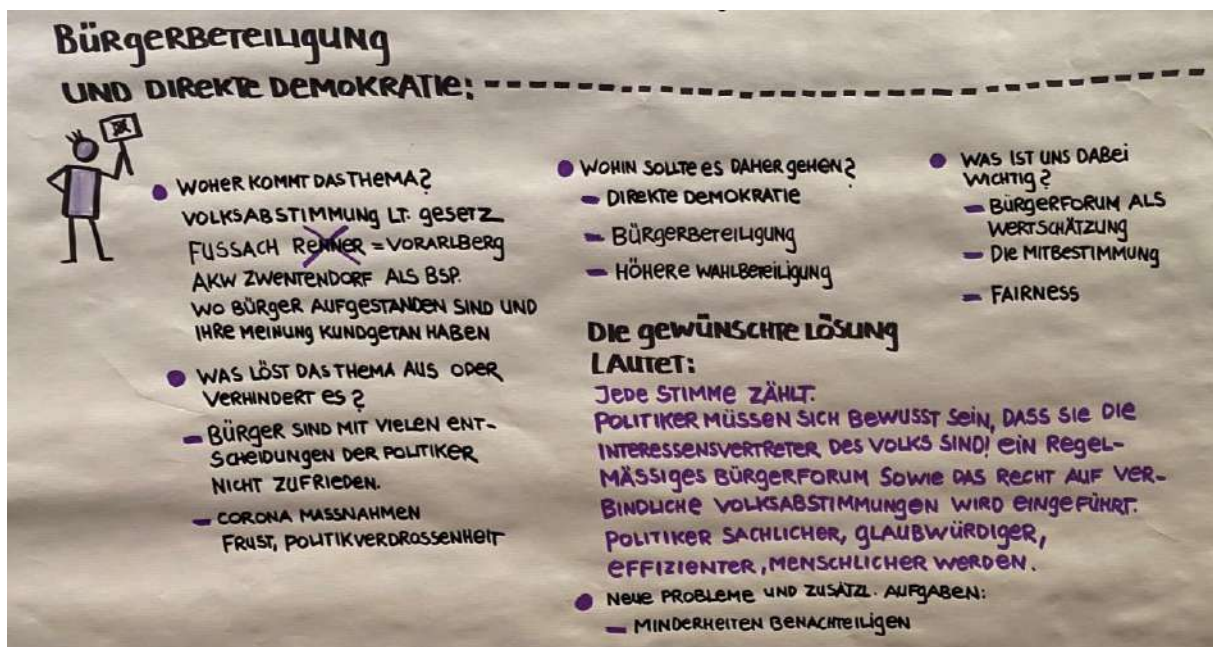 BÜRGERBETEILIGUNG
UND DIREKTE DEMOKRATIE:
WOHER KOMMT DAS THEMA?
VOLKSABSTIMMUNG LT. GESETZ
FUSSACH RENNER = VORARLBERG
AKW ZWENTENDORF ALS BSP.
WO BÜRGER AUFGESTANDEN SIND UND
IHRE MEINUNG KUNDGETAN HABEN
WAS LÖST DAS THEMA AUS ODER
VERHINDERT ES?
– BÜRGER SIND MIT VIELEN ENT-
SCHEIDUNGEN DER POLITIKER
NICHT ZUFRIEDEN.
– CORONA MASSNAHMEN
FRUST, POLITIKVERDROSSENHEIT
WOHIN SOLLTE ES DAHER GEHEN?
– DIREKTE DEMOKRATIE
– BÜRGERBETEILIGUNG
– HÖHERE WAHLBETEILIGUNG
WAS IST UNS DABEI
WICHTIG?
– BÜRGERFORUM ALS
WERTSCHÄTZUNG
– DIE MITBESTIMMUNG
– FAIRNESS
DIE GEWÜNSCHTE LÖSUNG
LAUTET:
JEDE STIMME ZÄHLT.
POLITIKER MÜSSEN SICH BEWUSST SEIN, DASS SIE DIE
INTERESSENSVERTRETER DES VOLKS SIND! EIN REGEL-
MÄSSIGES BÜRGERFORUM SOWIE DAS RECHT AUF VER-
BINDLICHE VOLKSABSTIMMUNGEN WIRD EINGEFÜHRT.
POLITIKER SACHLICHER, GLAUBWÜRDIGER,
EFFIZIENTER, MENSCHLICHER WERDEN.
NEUE PROBLEME UND ZUSÄTZL. AUFGABEN:
– MINDERHEITEN BENACHTEILIGEN